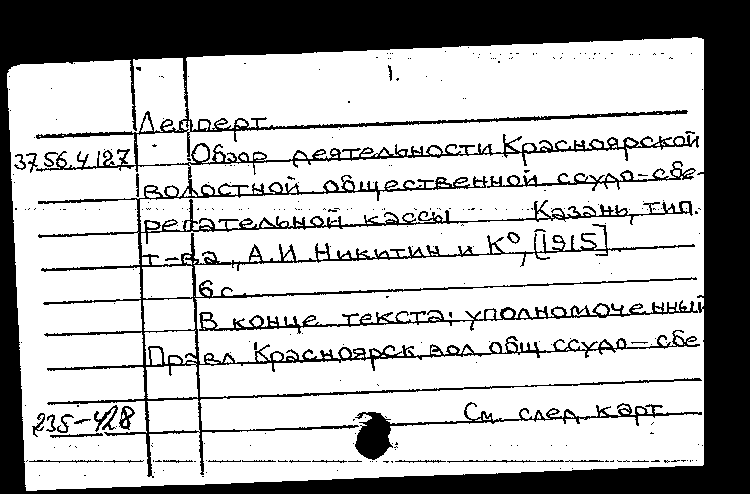 1.
Лепперт.
37.56.4.127 Обзор деятельности Красноярской
волостной общественной ссудо-сбе-
регательной кассы Казань, тип.
т-ва „А.И. Никитин и К°, [1915]
6 с.
В конце текста: уполномоченный
Правл. Красноярск. вол. общ. ссудо-сбе-
235-428 См. след. карт.